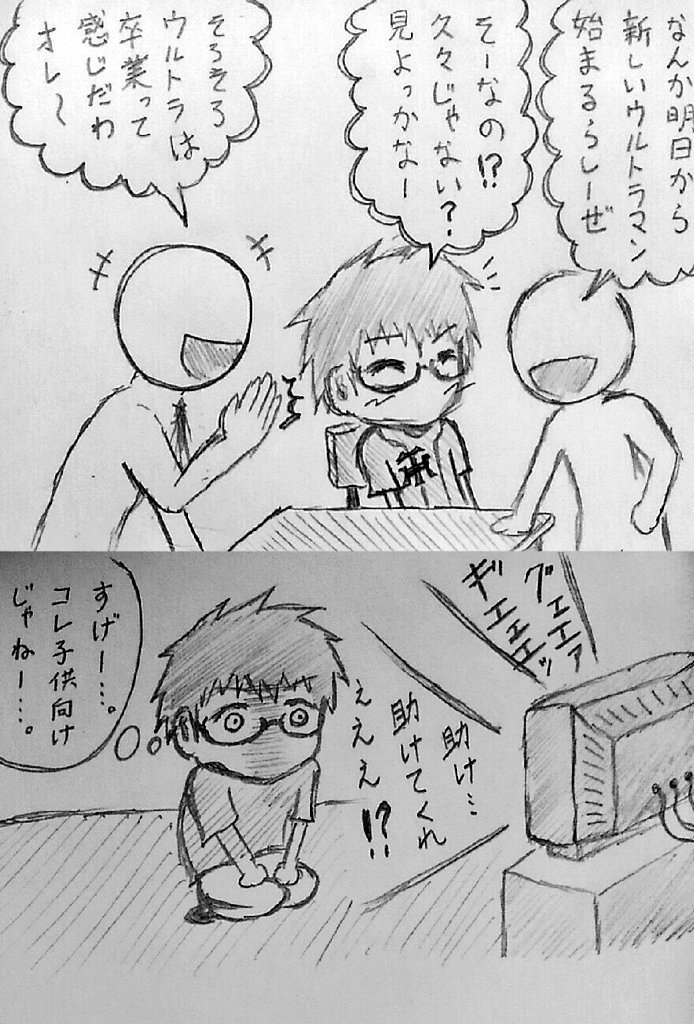 なんか明日から
新しいウルトラマン
始まるらしーぜ
そーなの!?
久々じゃない?
見よっかなー
そろそろ
ウルトラは
卒業って
感じだわ
オレ〜
グエエァ
ギエエエッ
助け…
助けてくれ
ぇぇぇ!?
すげー…。
コレ子供向け
じゃねー…。